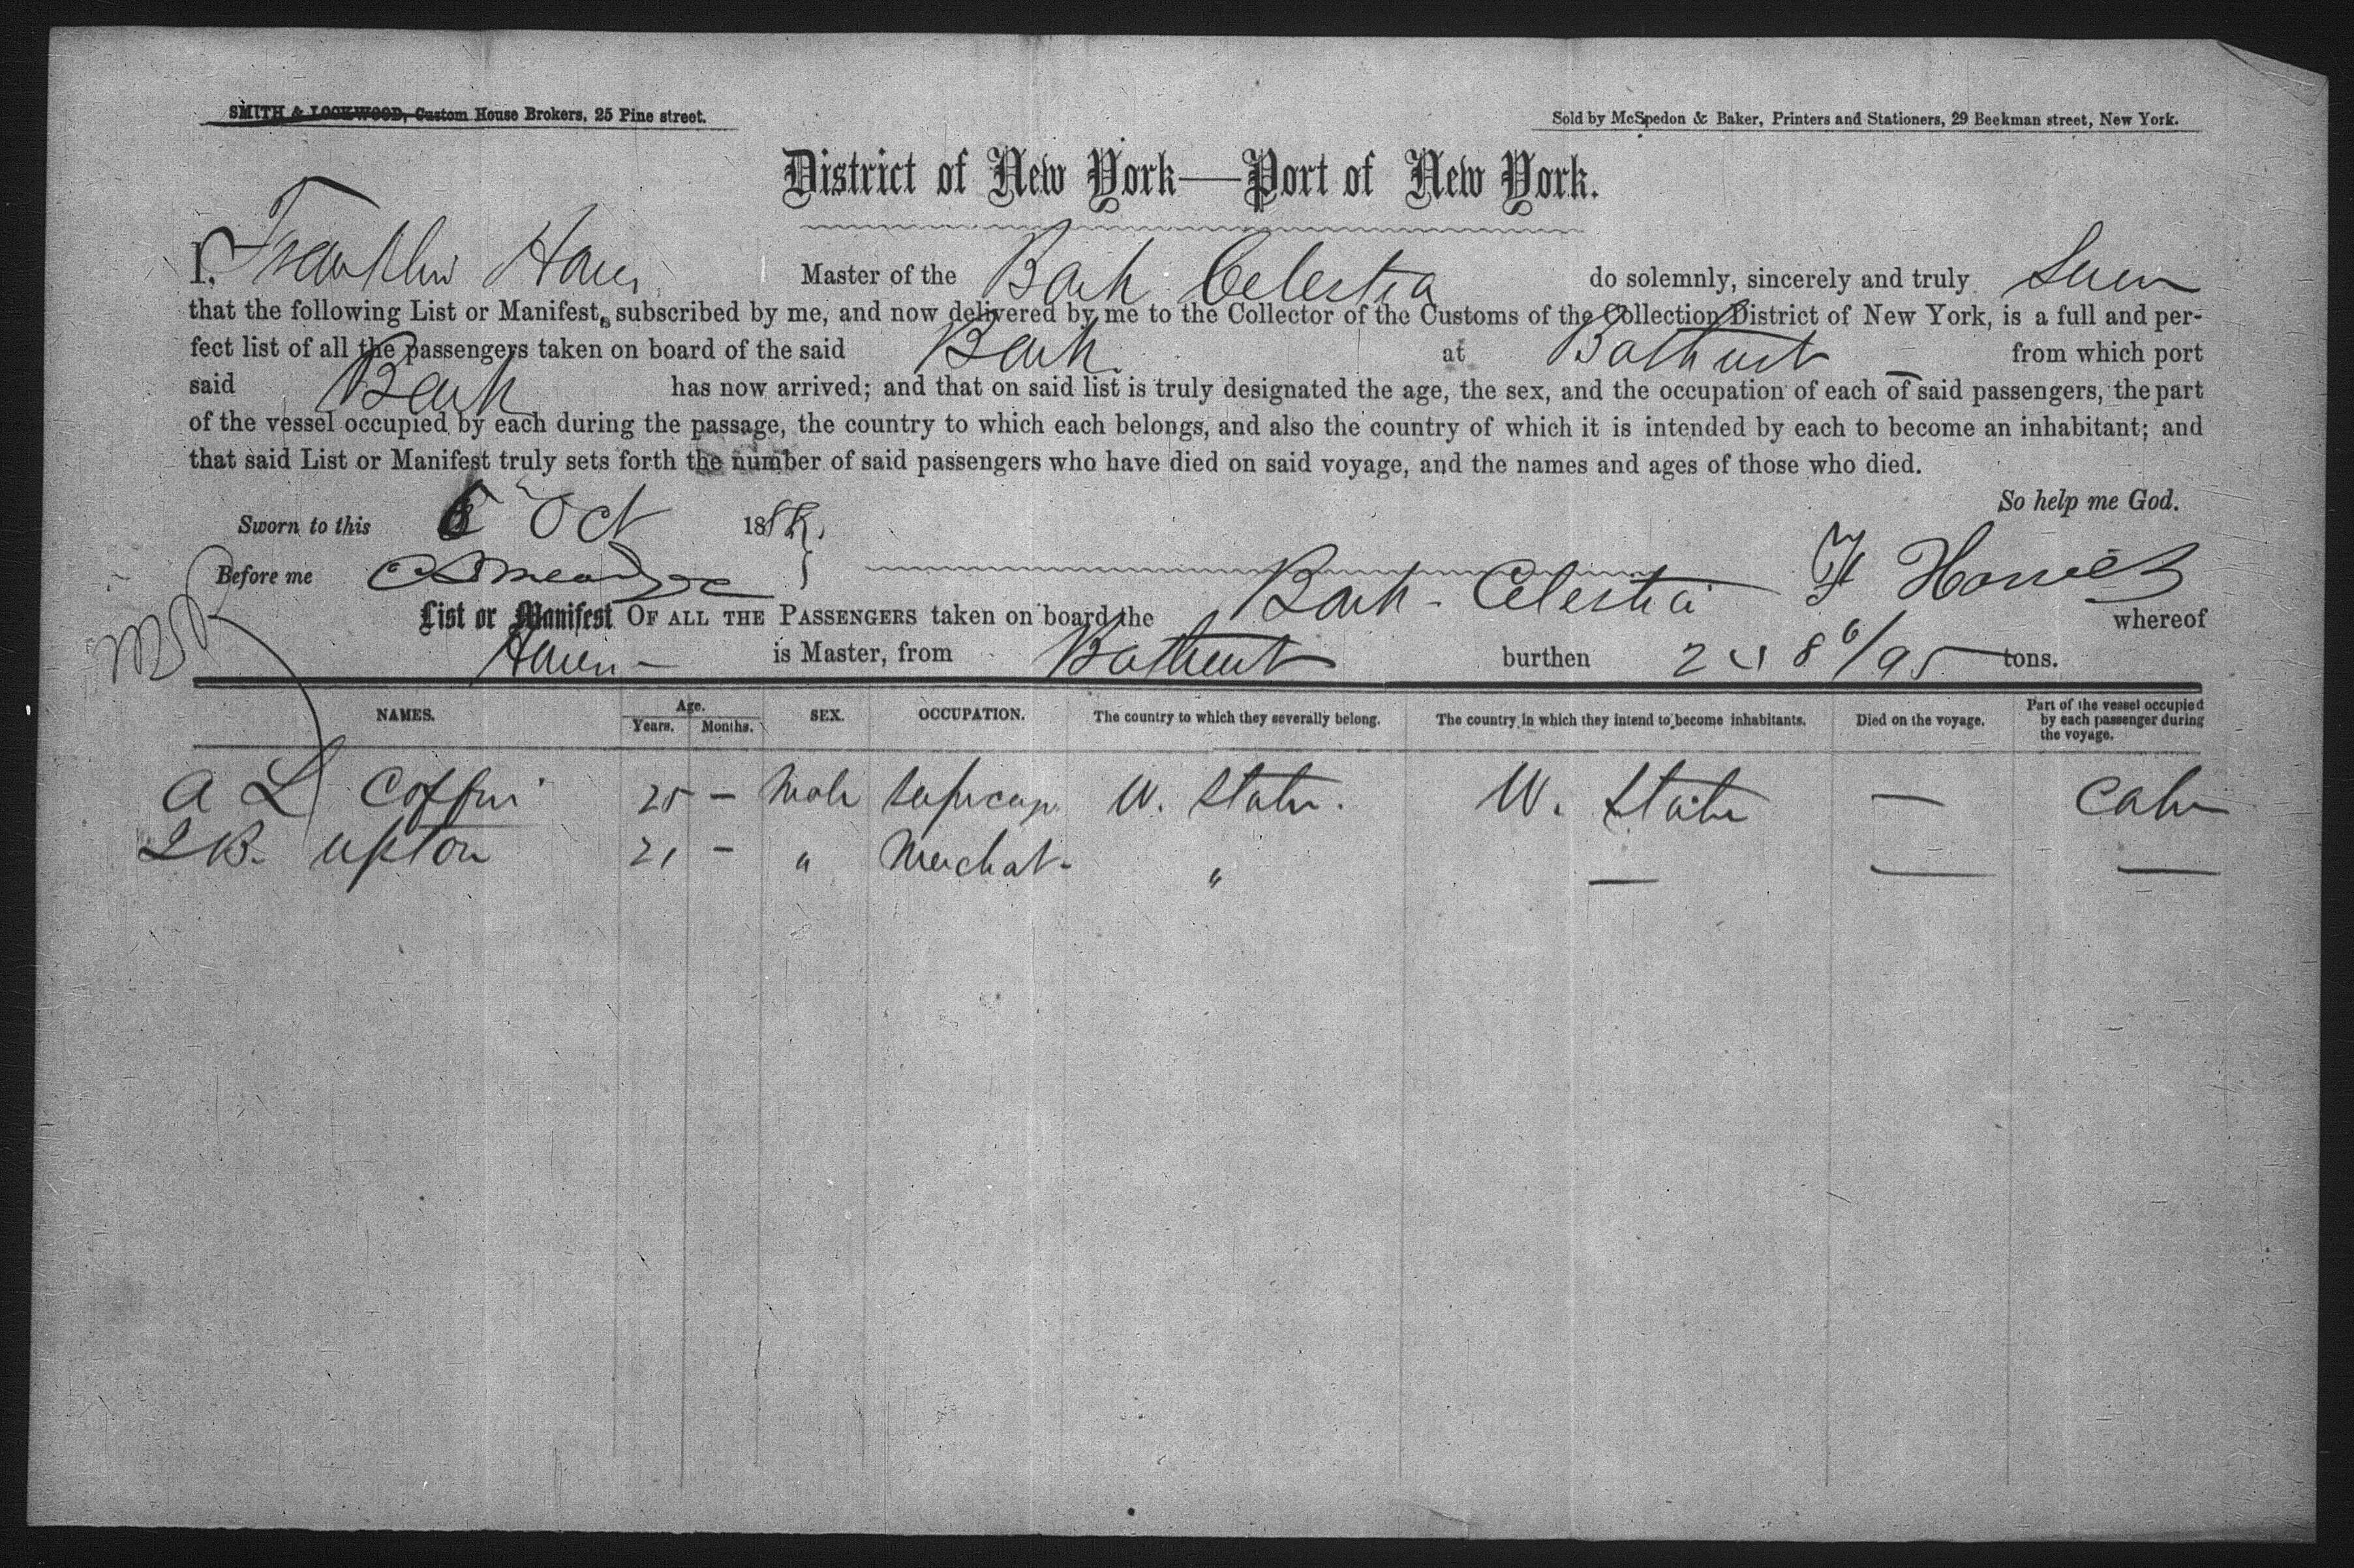 SMITH & LOCKWOOD, Custom House Brokers, 25 Pine street.
Sold by McSpedon & Baker, Printers and Stationers, 29 Beekman street, New York.
District of New York—Port of New York.
I, Franklin Hawes Master of the Bark Celestia do solemnly, sincerely and truly Swear
that the following List or Manifest, subscribed by me, and now delivered by me to the Collector of the Customs of the Collection District of New York, is a full and per-
fect list of all the passengers taken on board of the said Bark at Bathurst from which port
said Bark has now arrived; and that on said list is truly designated the age, the sex, and the occupation of each of said passengers, the part
of the vessel occupied by each during the passage, the country to which each belongs, and also the country of which it is intended by each to become an inhabitant; and
that said List or Manifest truly sets forth the number of said passengers who have died on said voyage, and the names and ages of those who died.
So help me God.
Sworn to this Oct 18
Before me
F Hawes
List or Manifest OF ALL THE PASSENGERS taken on board the Bark Celestia whereof
Hawes is Master, from Bathurst burthen tons.
NAMES. Age. SEX. OCCUPATION. The country to which they severally belong. The country in which they intend to become inhabitants. Died on the voyage. Part of the vessel occupied by each passenger during the voyage.
Years. Months.
A L Coffin 25 — Male Supercargo U. States. U. States — Cabin
B. Upton 21 — " Merchat " — — —